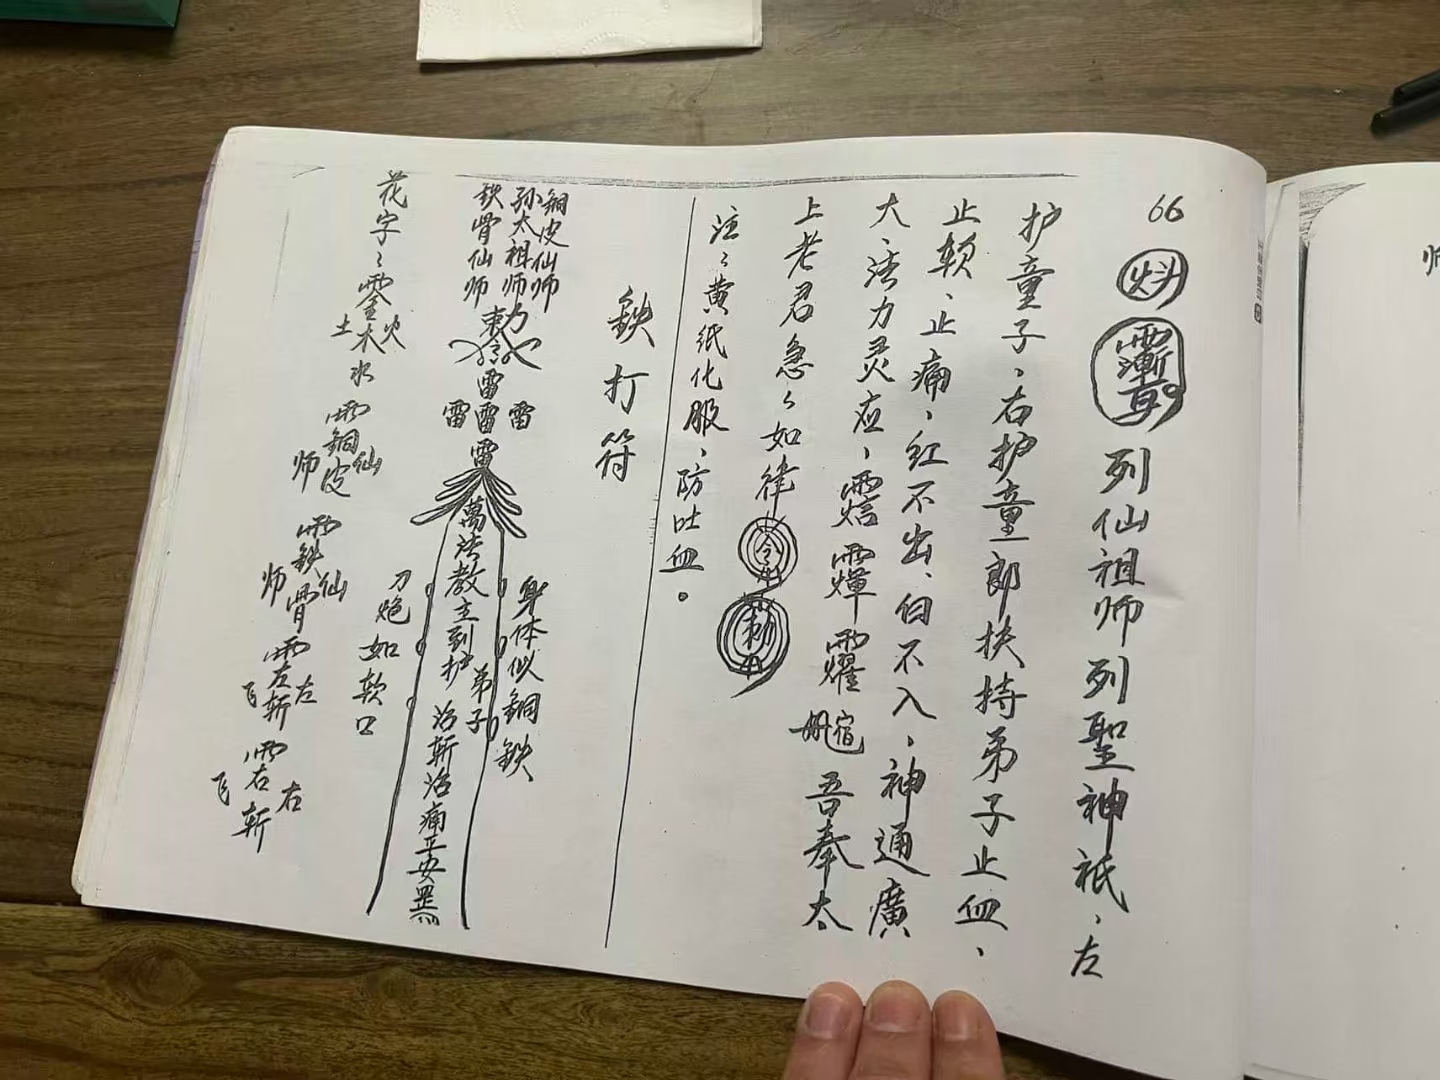 66
列仙祖师列聖神祇、左
护童子、右护童郎扶持弟子止血、
止软、止痛、红不出、白不入、神通廣
大、法力灵应、吾奉太
上老君急々如律令
注：黄纸化服、防吐血。
鉄打符
銅皮仙师
孙太祖师
鉄骨仙师
雷
雷雷雷
雷
萬法教主到护弟子治斩治痛平安罡
身体似銅鉄
刀炮如软口
花字：
火
木
土
水
銅皮仙师
鉄骨仙师
左斩左飞
右斩右飞
师